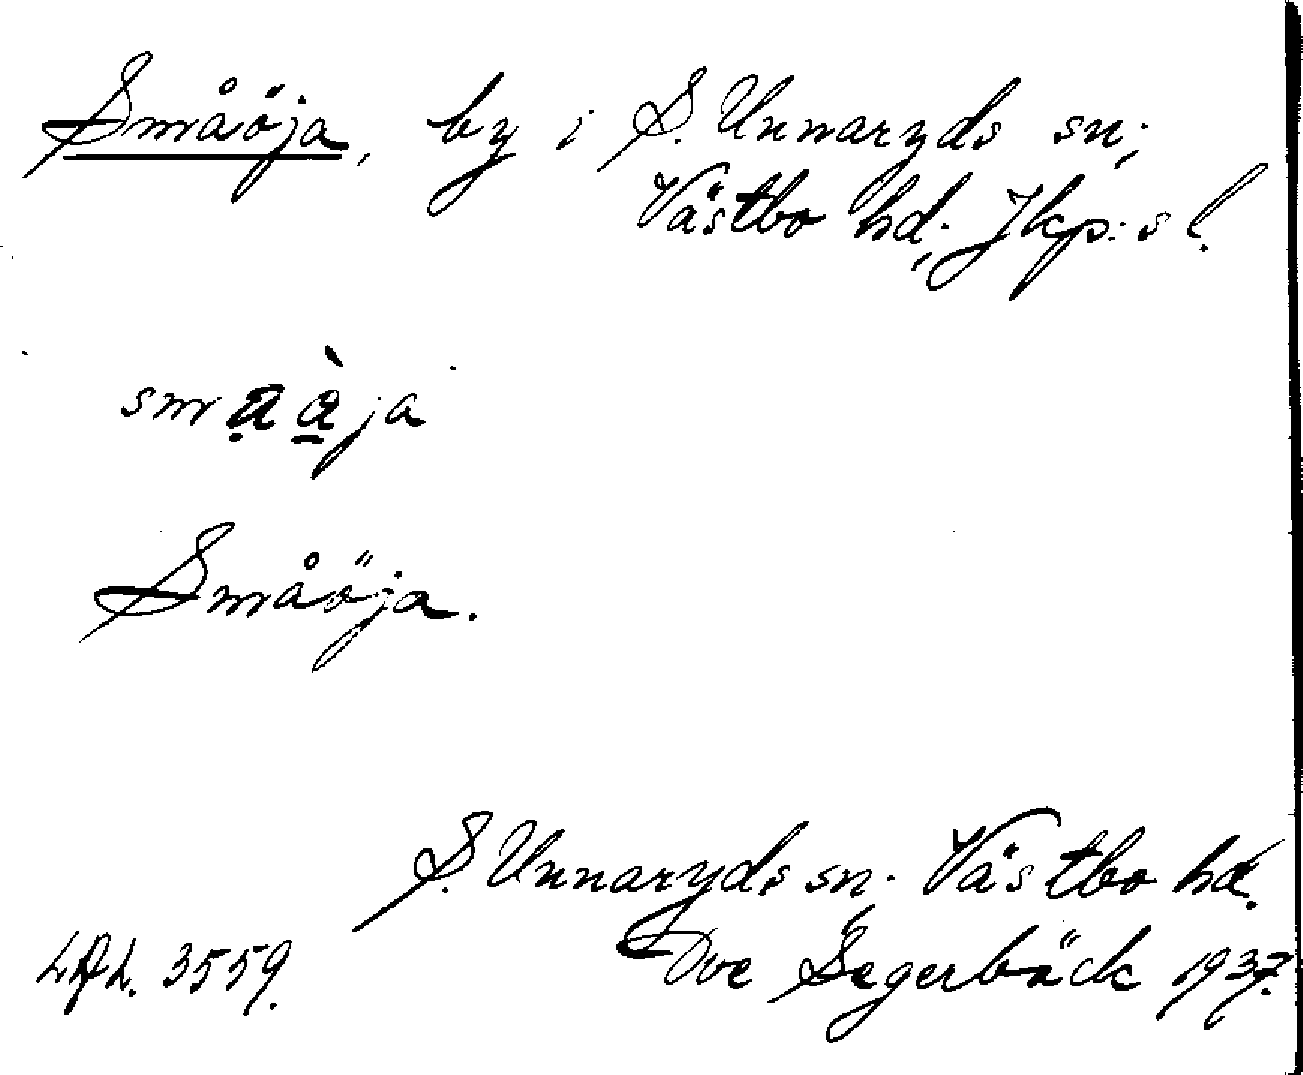 Småöja, by i S. Unnaryds sn.,
Västbo hd., Jkp:s l.
smạà̱ja
Småöja.
S. Unnaryds sn. Västbo hd.
LAL. 3559. Ove Segerbäck 1937.